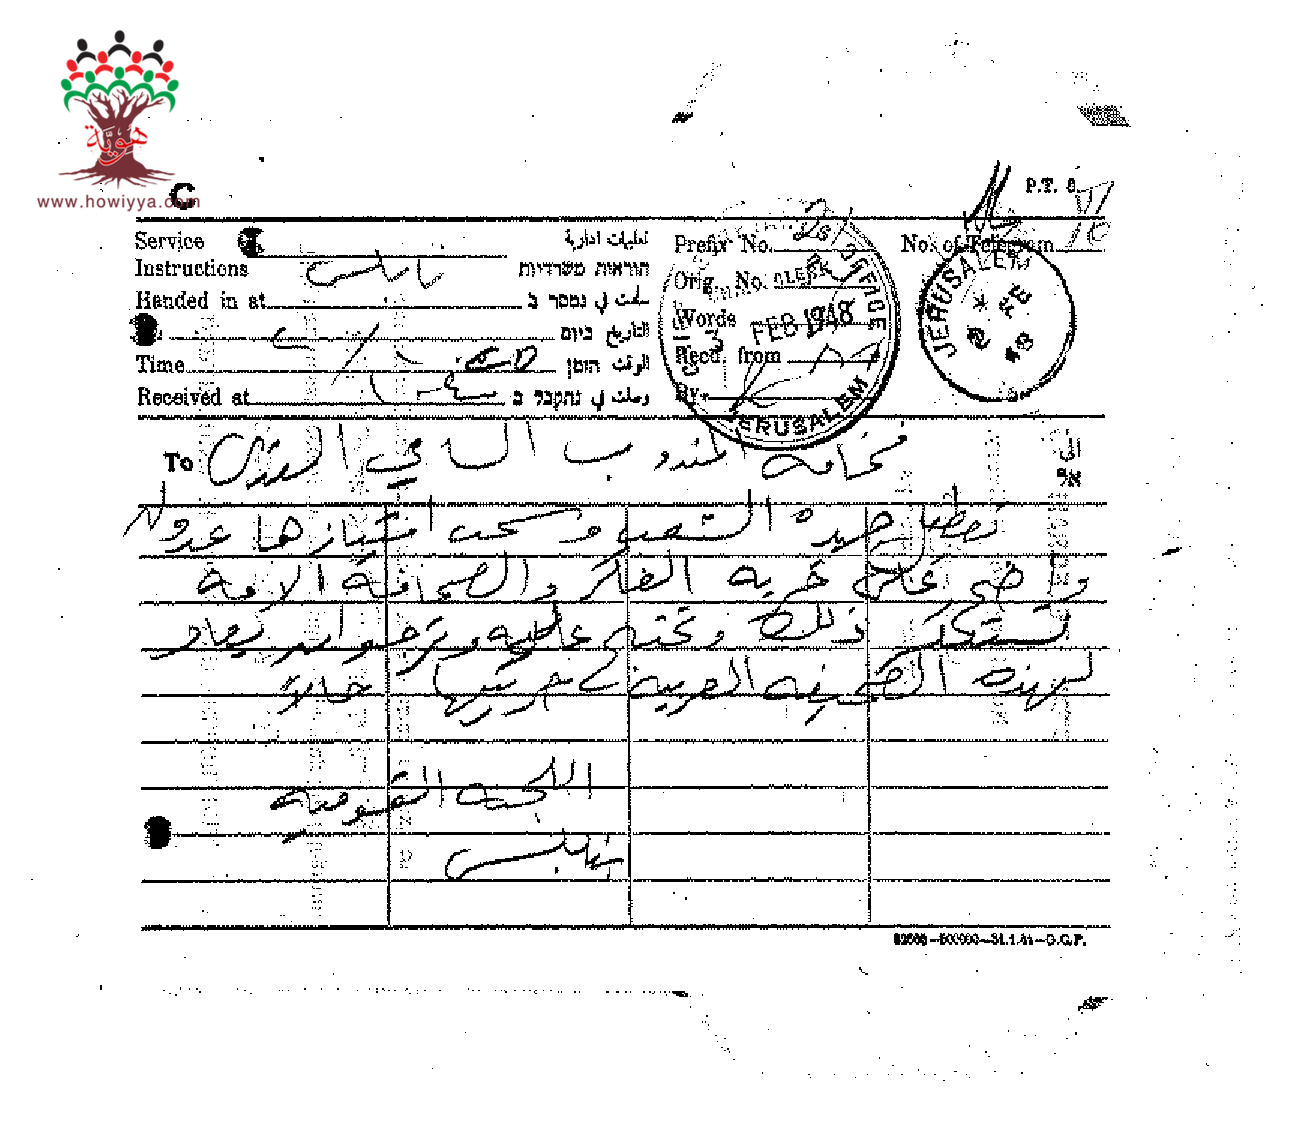 هوية
www.howiyya.com
C
P.T. 8.
Service
Instructions
تعليمات ادارية
הוראות משרדיות
نابلس
Handed in at
سلمت في נמסר ב
التاريخ ביום
Time
الوقت הזמן
Received at
وصلت في נתקבל ב
Prefix No.
Orig. No.
Words
Recd. from
By
No. of Telegram
CLERK
OFFICE
FEB 1948
JERUSALEM
JERUSALEM
FE
48
To
فخامة المندوب السامي القدس
الى
אל
تعطيل جريدة الشعب وسحب امتيازها عدوان
واضح على حرية الفكر والصحافة الامة
تستنكر ذلك وتحتج عليه وترجو ان يعاد
لهذه الصحيفة العربية حريتها حالاً
اللجنة القومية
نابلس